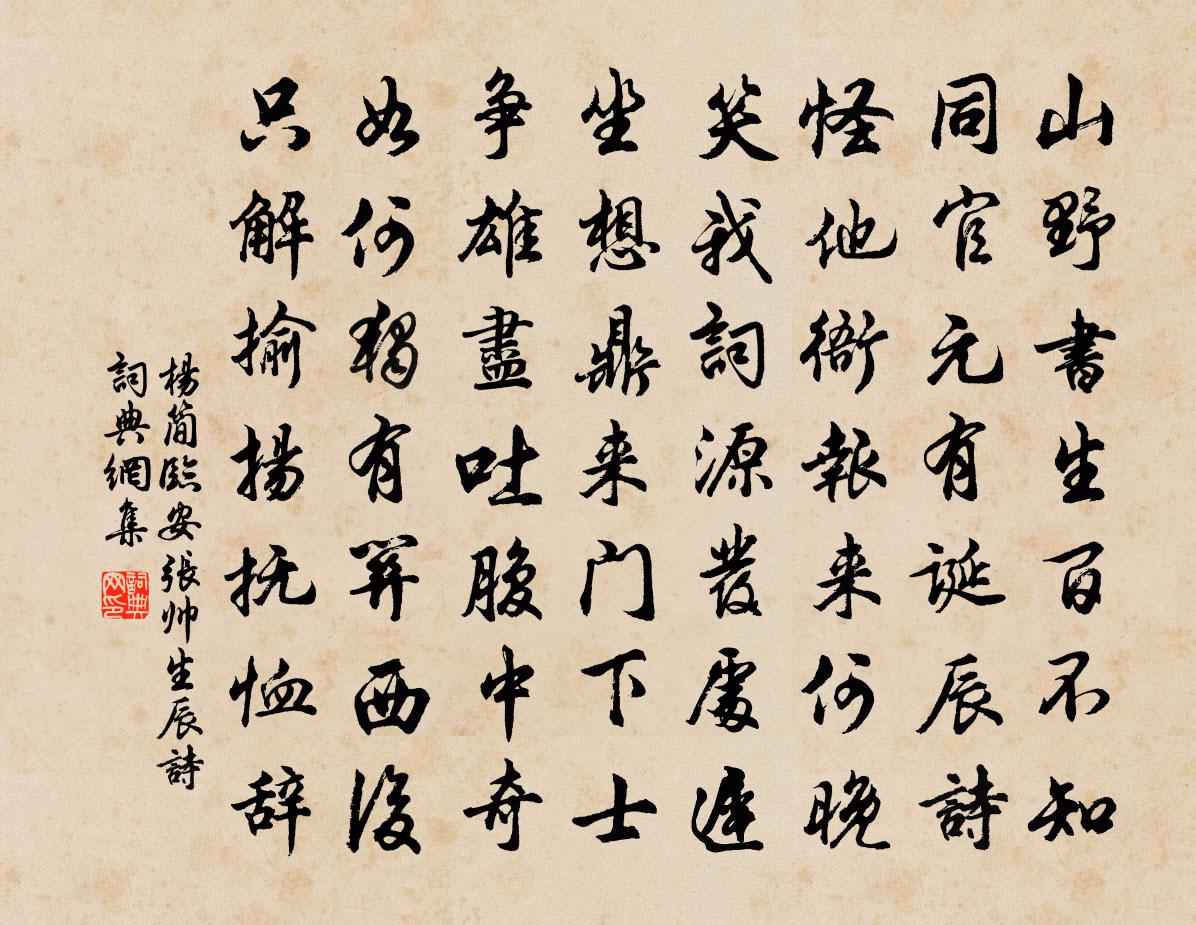 山野書生百不知
同官元有誕辰詩
怪他衙報来何晚
笑我詞源發處遲
坐想鼎来门下士
争雄盡吐腹中奇
如何獨有笄西後
只解揄揚抚恤辞
楊简臨安張帅生辰詩
詞典網集
詞典网印